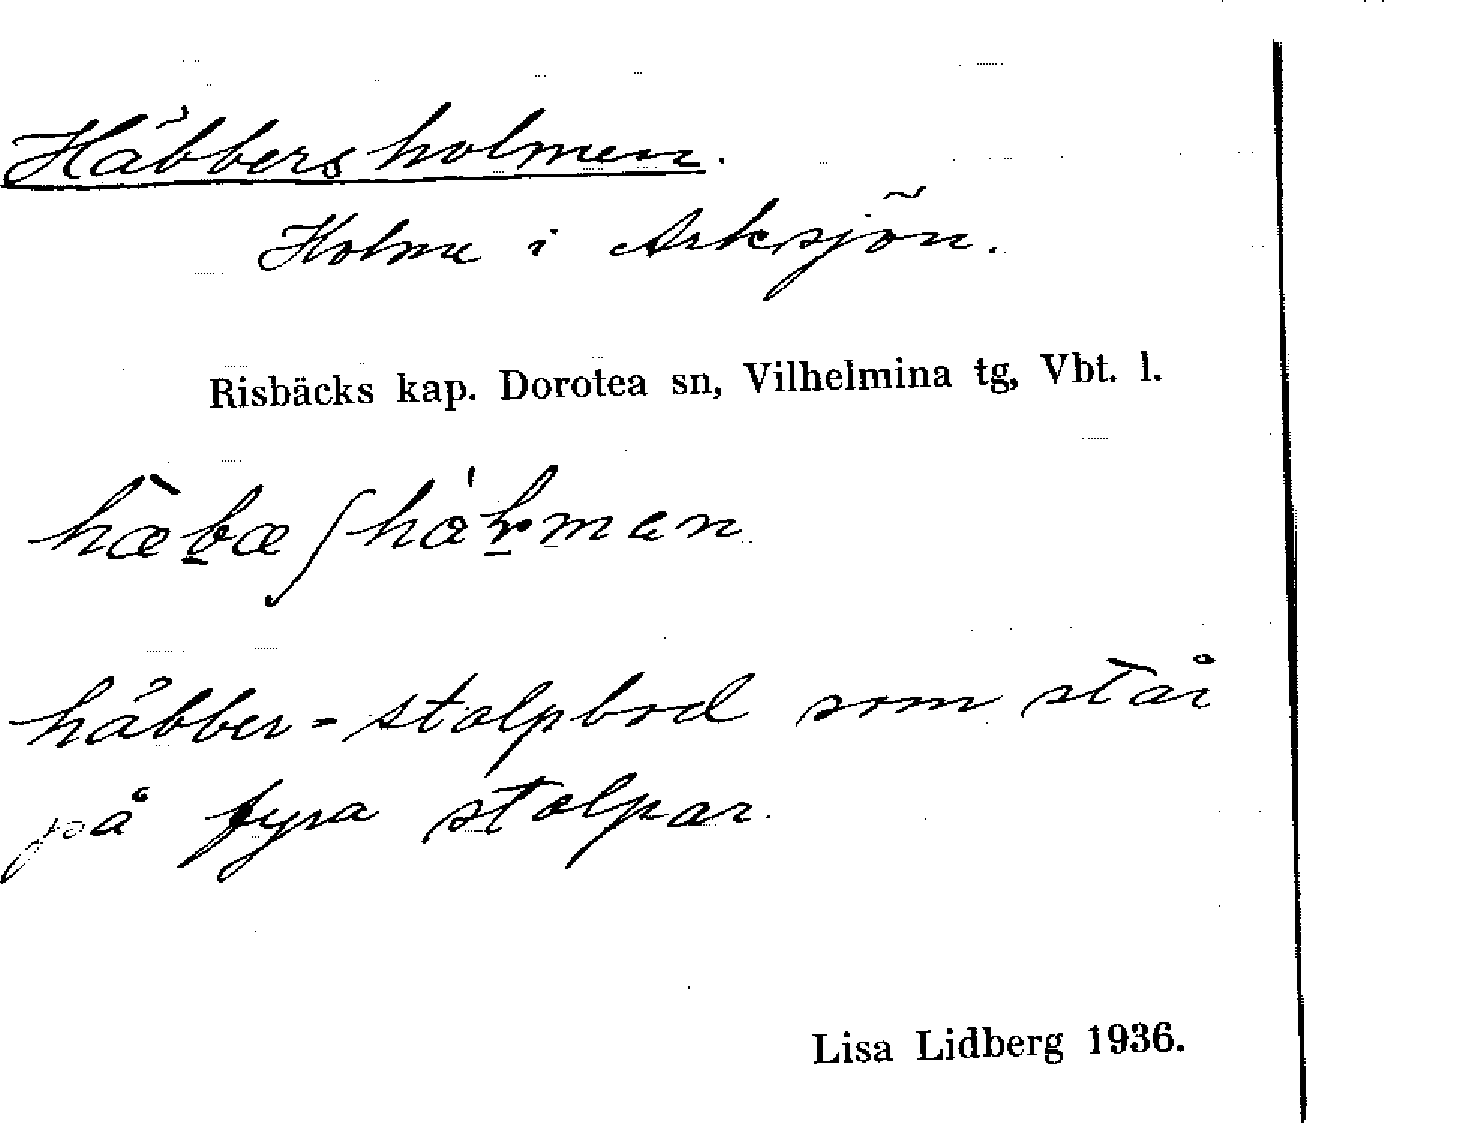 Häbbersholmen.
Holme i Arksjön.
Risbäcks kap. Dorotea sn, Vilhelmina tg, Vbt. l.
häbber - stolpbod som står
på fyra stolpar.
Lisa Lidberg 1936.